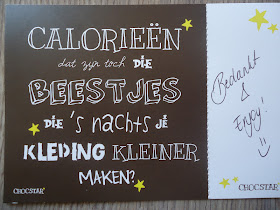 CALORIEËN
dat zijn toch DIE
BEESTJES
DIE 's nachts je
KLEDING KLEINER
MAKEN?
CHOCSTAR
Bedankt
&
Enjoy!
CHOCSTAR